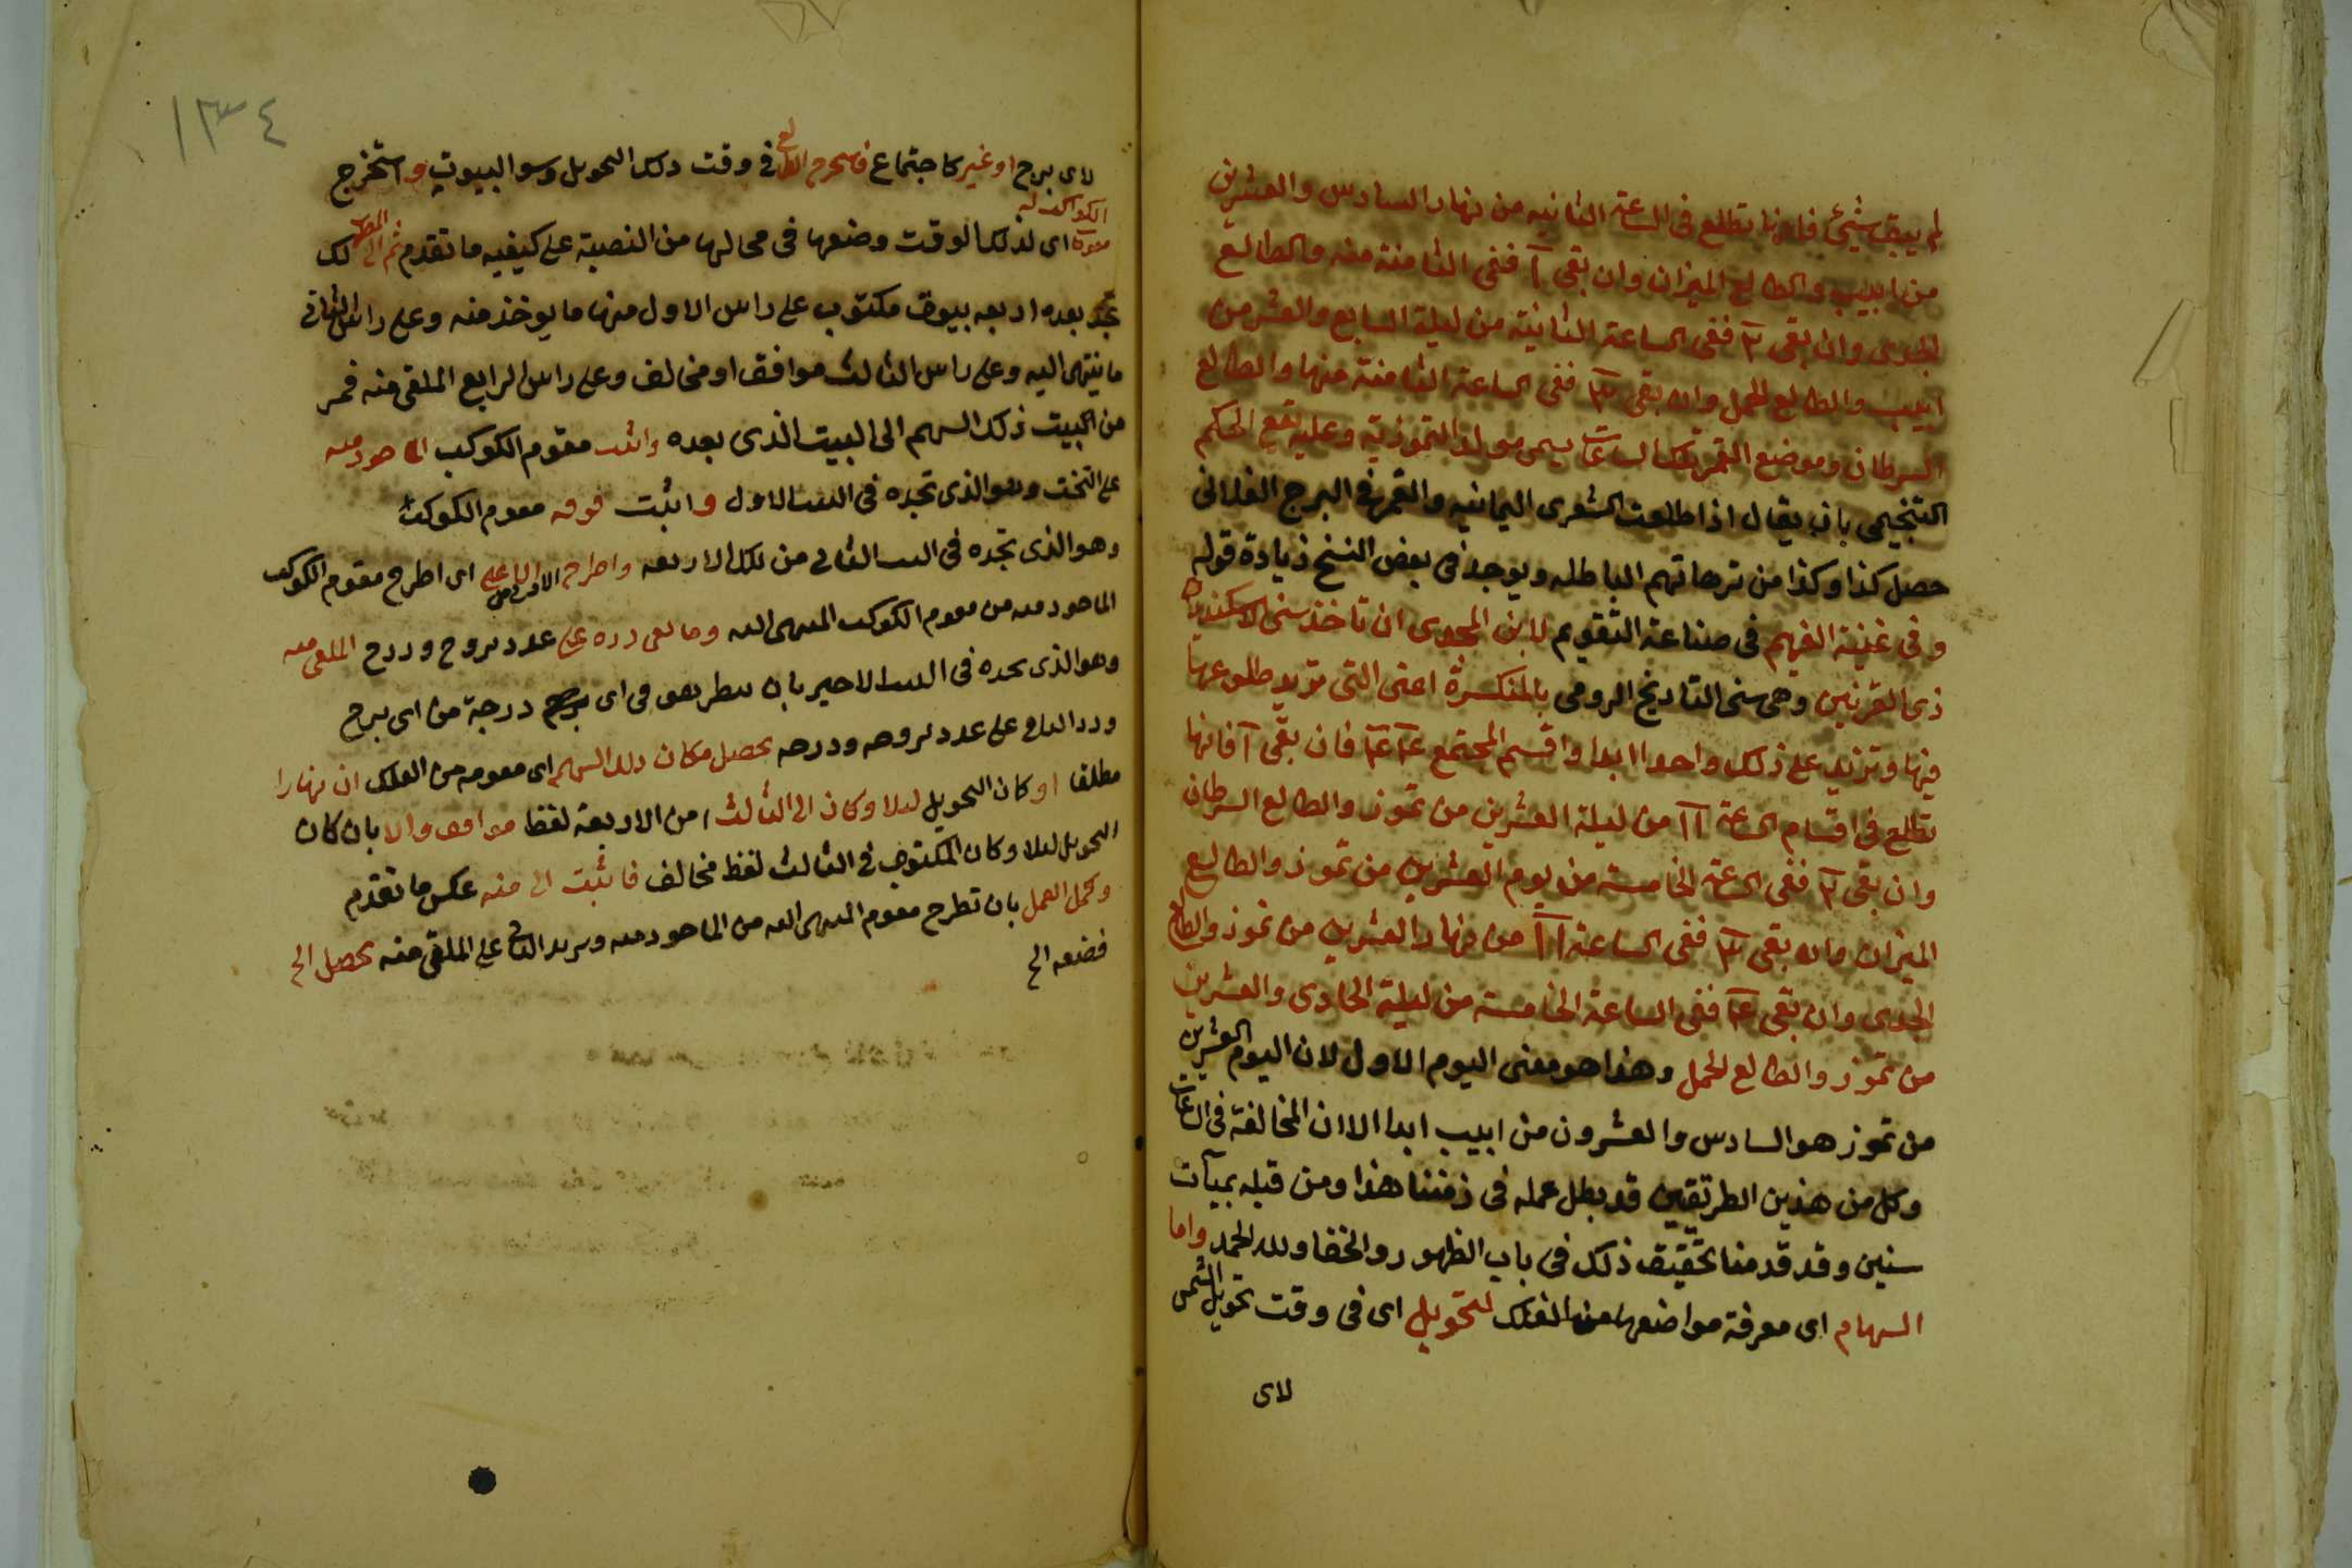 لم يبق شيئ فانها تطلع فى الساعة الثانيه من نهار السادس والعشرين
من ابيب والطالع الميزان وان بقى ١ ففى الثامنة منه والطالع
الجدى وان بقى ٢ ففى الساعة الثانية من ليلة السابع والعشرمن
ابيب والطالع الحمل وان بقى ٣ ففى الساعة الثامنة منها والطالع
السرطان وموضع القمر تلك الساعات يسمى مولد التموزية وعليه يقع الحكم
التنجيمى بان يقال اذا طلعت الشعرى اليمانيه والقمر فى البرج الفلانى
حصل كذا وكذا من ترهاتهم الباطله ويوجد فى بعض النسخ زيادة قوله
وفى غنية الفهيم فى صناعة التقويم لابن المجدى ان تاخذ سنى الاسكندر
ذى القرنين وهى سنى التاريخ الرومى بالمنكسرة اعنى التى تريد طلوعها
فيها وتزيد على ذلك واحدا ابدا واقسم المجتمع ع٤ ع٤ فان بقى ١ فانها
تطلع فى اقسام الساعة ١١ من ليلة العشرين من تموز والطالع السرطان
وان بقى ٢ ففى الساعة الخامسة من يوم العشرين من تموز والطالع
الميزان وان بقى ٣ ففى الساعة ١١ من نهار العشرين من تموز والطالع
الجدى وان بقى ع٤ ففى الساعة الخامسة من ليلة الحادى والعشرين
من تموز والطالع الحمل وهذا هو معنى اليوم الاول لان اليوم العشرين
من تموز هو السادس والعشرون من ابيب ابدا الا ان المخالفة فى الساعات
وكل من هذين الطريقين قد بطل عمله فى زمننا هذا ومن قبله بميآت
سنين وقد قدمنا تحقيق ذلك فى باب الظهور والخفا ولله الحمد واما
السهام اى معرفة مواضعها من الفلك لتحويل اى فى وقت تحويل الشمس
لاى
١٣٤
لاى برج او غير كاجتماع فاستخرج الطالع فى وقت ذلك التحويل وسو البيوت واستخرج
الكواكب له
مقومة اى لذلك الوقت وضعها فى محالها من النصبة على كيفيه ما تقدم ثم الى لك
تجد بعده اربعه بيوت مكتوب على راس الاول منها ما يوخذ منه وعلى راس الثانى
ما ينتهى اليه وعلى راس الثالث موافق او مخالف وعلى راس الرابع الملقى منه فمر
من البيت ذلك السهم الى البيت الذى بعده واثبت مقوم الكوكب الماخوذ منه
على التخت وهو الذى تجده فى البيت الاول واثبت فوقه مقوم الكوكب
وهو الذى تجده فى البيت الثانى من تلك الاربعه واطرح الادنى من الاعلى اى اطرح مقوم الكوكب
الماخوذ منه من مقوم الكوكب المنتهى اليه وما بقى زده على عدد بروج ودرج الملقى منه
وهو الذى تجده فى البيت الاخير بان تنظر هو فى اى درجة من اى برج
وزد الباقى على عدد بروجه ودرجه يحصل مكان ذلك السهم اى مقومه من الفلك ان نهارا
مطلقا او كان التحويل ليلا وكان فى الثالث من الاربعة لفظ موافق والا بان كان
التحويل ليلا وكان المكتوب فى الثالث لفظ مخالف فاثبت الى منه عكس ما تقدم
وكمل العمل بان تطرح مقوم المنتهى اليه من الماخوذ منه وتزيد الباقى على الملقى منه يحصل الخ
فضعه الخ